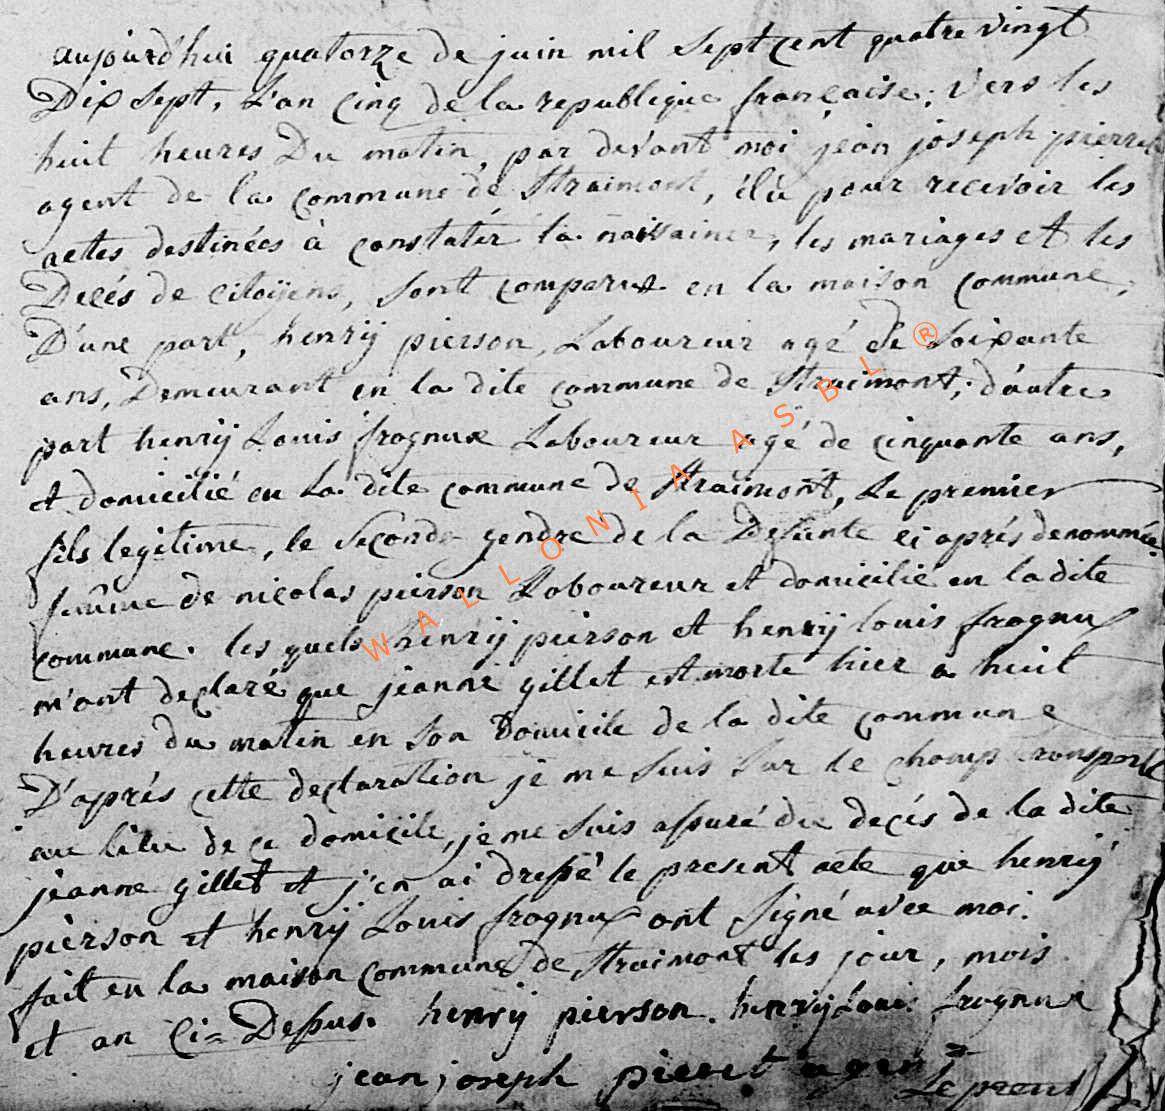 aujourd'hui quatorze de juin mil sept cent quatre vingt
Dix sept, L'an cinq de la republique française, vers les
huit heures Du matin, par devant moi jean joseph pierret
agent de la commune de Straimont, élu pour recevoir les
actes destinées à constater la naissance, les mariages et les
Decés de citoijens, sont comparut en la maison commune,
D'une part, henrij pierson, Laboureur agé de soixante
ans, Demeurant en la dite commune de Straimont, d'autre
part henrij Louis frognux Laboureur agé de cinquante ans,
et domicilié en La dite commune de Straimont, Le premier
fils legitime, le second gendre de la Defunte ci après denommée
femme de nicolas pierson Laboureur et domicilié en la dite
commune. les quels henrij pierson et henrij louis frognux
m'ont declaré que jeanne gillet est morte hier a huit
heures du matin en son Domicile de la dite commune
D'après cette declaration je me suis sur le champ transporté
au lieu de ce domicile, je me suis assuré du decés de la dite
jeanne gillet et j'en ai dressé le present acte que henrij
pierson et henrij Louis frognux ont signé avec moi.
fait en la maison commune de Straimont les jour, mois
et an Ci-Dessus. henrij pierson. henrij Louis frognux
jean joseph pierret agent
WALLONIA ASBL ®